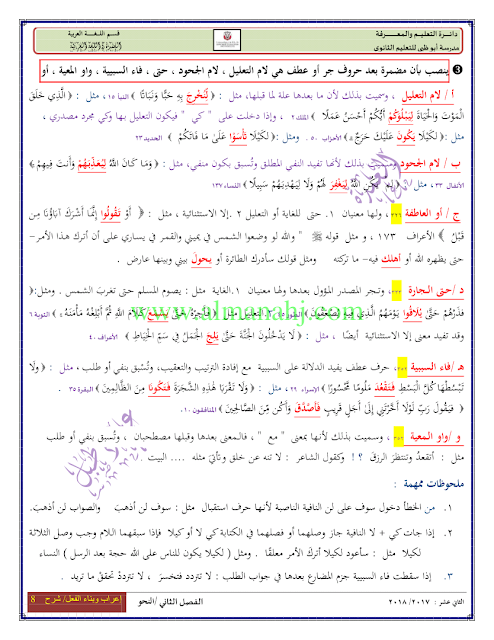 دائرة التعليم والمعرفة
مدرسة أبو ظبي للتعليم الثانوي
قسم اللغة العربية
❸ ينصب بأن مضمرة بعد حروف جر أو عطف هي لام التعليل ، لام الجحود ، حتى ، فاء السببية ، واو المعية ، أو
أ / لام التعليل ، وسميت بذلك لأن ما بعدها علة لما قبلها، مثل : ﴿ لِّنُخْرِجَ بِهِ حَبًّا وَنَبَاتًا ﴾ النبأ ١٥، مثل : ﴿ الَّذِي خَلَقَ
الْمَوْتَ وَالْحَيَاةَ لِيَبْلُوَكُمْ أَيُّكُمْ أَحْسَنُ عَمَلًا ﴾ الملك ٢ ، وإذا دخلت على " كي " فيكون التعليل بها وكي مجرد مصدري ،
مثل : ﴿ لِكَيْلَا يَكُونَ عَلَيْكَ حَرَجٌ ﴾ الأحزاب ٥٠ . ومثل : ﴿ لِكَيْلَا تَأْسَوْا عَلَىٰ مَا فَاتَكُمْ ﴾ الحديد ٢٣
ب / لام الجحود وسميت بذلك لأنها تفيد النفي المطلق وتُسبق بكون منفي، مثل : ﴿ وَمَا كَانَ اللَّهُ لِيُعَذِّبَهُمْ وَأَنتَ فِيهِمْ ﴾
الأنفال ٣٣ ، مثل ﴿ لَمْ يَكُنِ اللَّهُ لِيَغْفِرَ لَهُمْ وَلَا لِيَهْدِيَهُمْ سَبِيلًا ﴾ النساء ١٣٧
ج / أو العاطفة ، ولها معنيان ١. حتى للغاية أو التعليل ٢ .إلا الاستثنائية ، مثل : ﴿ أَوْ تَقُولُوا إِنَّمَا أَشْرَكَ آبَاؤُنَا مِن
قَبْلُ ﴾ الأعراف ١٧٣ ، و مثل قوله ﷺ " والله لو وضعوا الشمس في يميني والقمر في يساري على أن أترك هذا الأمر-
حتى يظهره الله أو أهلك فيه- ما تركته ومثل قولك سأدرك الطائرة أو يحولَ بيني وبينها عارض .
د /حتى الجارة ، وتجر المصدر المؤول بعدها ولها معنيان ١.الغاية مثل : يصوم المسلم حتى تغربَ الشمس . ومثل: ﴿
فَذَرْهُمْ حَتَّىٰ يُلَاقُوا يَوْمَهُمُ الَّذِي فِيهِ يُصْعَقُونَ ﴾ الطور ٤٥ ٢. التعليل مثل : ﴿ فَأَجِرْهُ حَتَّىٰ يَسْمَعَ كَلَامَ اللَّهِ ثُمَّ أَبْلِغْهُ مَأْمَنَهُ ﴾ التوبة ٦
وقد تفيد معنى إلا الاستثنائية أيضًا ، مثل : ﴿ لَا يَدْخُلُونَ الْجَنَّةَ حَتَّىٰ يَلِجَ الْجَمَلُ فِي سَمِّ الْخِيَاطِ ﴾ الأعراف ٤٠
هـ /فاء السببية ، حرف عطف يفيد الدلالة على السببية مع إفادة الترتيب والتعقيب، وتُسْبق بنفي أو طلب ، مثل : ﴿ وَلَا
تَبْسُطْهَا كُلَّ الْبَسْطِ فَتَقْعُدَ مَلُومًا مَّحْسُورًا ﴾ الإسراء ٢٩ ، مثل : ﴿ وَلَا تَقْرَبَا هَٰذِهِ الشَّجَرَةَ فَتَكُونَا مِنَ الظَّالِمِينَ ﴾ البقرة ٣٥
﴿ فَيَقُولَ رَبِّ لَوْلَا أَخَّرْتَنِي إِلَىٰ أَجَلٍ قَرِيبٍ فَأَصَّدَّقَ وَأَكُن مِّنَ الصَّالِحِينَ ﴾ المنافقون ١٠
و /واو المعية ، وسميت بذلك لأنها بمعنى " مع " ، فالمعنى بعدها وقبلها مصطحبان ، وتُسبق بنفي أو طلب
مثل : أتقعدُ وتنتظرَ الرزقَ ؟! وكقول الشاعر : لا تنه عن خلق وتأتيَ مثله .... البيت
ملحوظات مهمة :
١. من الخطأ دخول سوف على لن النافية الناصبة لأنها حرف استقبال مثل : سوف لن أذهبَ والصواب لن أذهبَ.
٢. إذا جات كي + لا النافية جاز وصلهما أو فصلهما في الكتابة كي لا أو كيلا فإذا سبقهما اللام وجب وصل الثلاثة
لكيلا مثل : سأعود لكيلا أترك الأمر معلقًا . ومثل ( لكيلا يكون للناس على الله حجة بعد الرسل ) النساء
٣. إذا سقطت فاء السببية جزم المضارع بعدها في جواب الطلب : لا تتردد فتخسرَ ، لا تترددْ تحققْ ما تريد .
الثاني عشر : ٢٠١٧ / ٢٠١٨
الفصل الثاني /النحو
إعراب وبناء الفعل/ شرح 8
almanahj.com